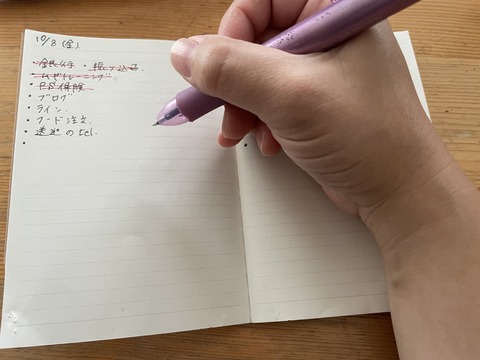 10/8 (金)
・銀行・振り込み.
・ムダトレーニング
・PS保険
・ブログ
・ライン.
・フード注文.
・のtel.
・